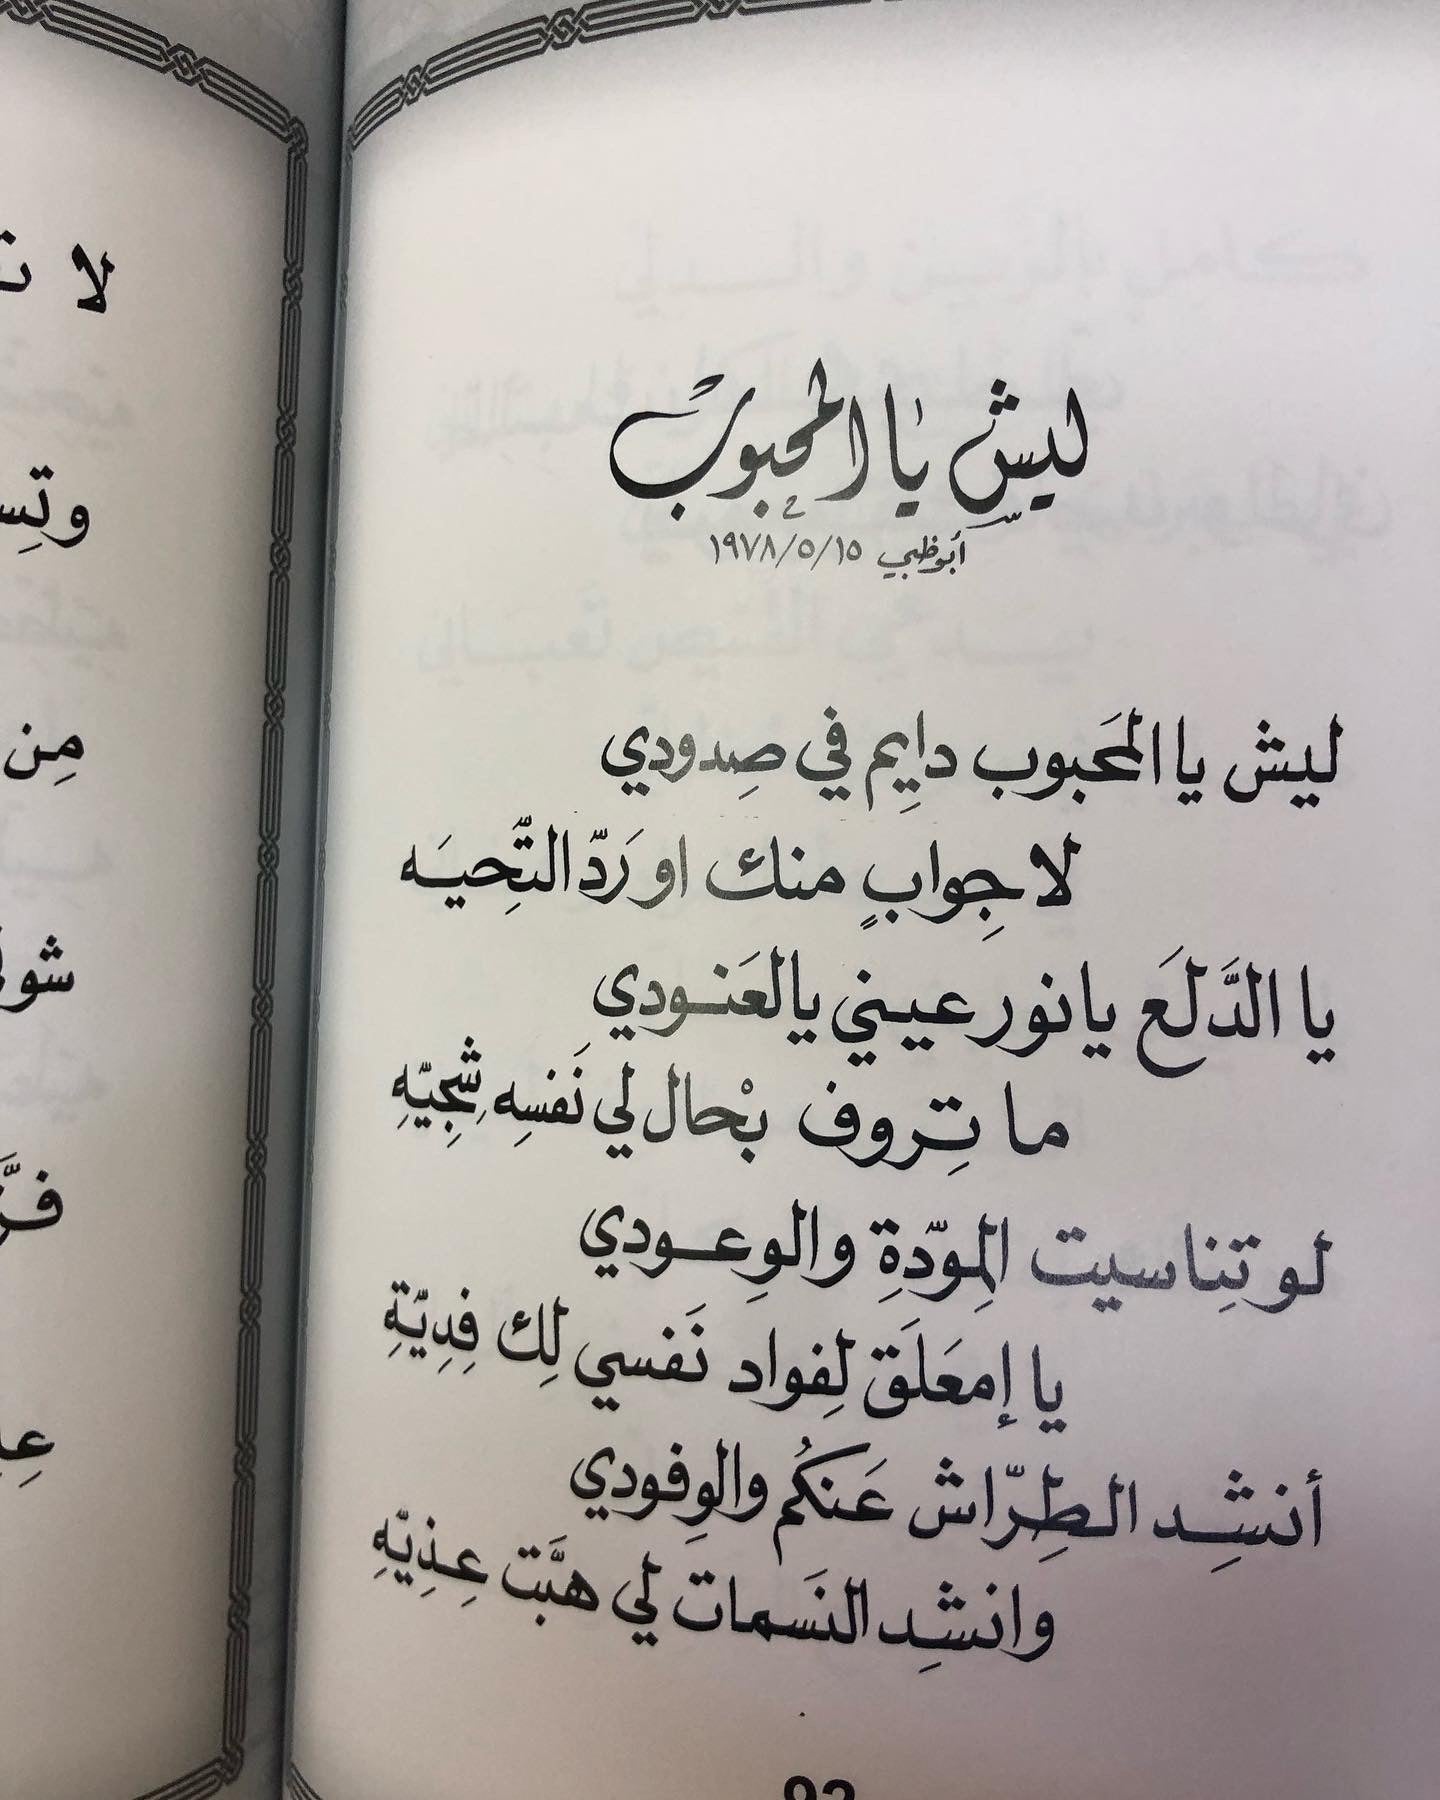 ليش يا المحبوب
أبوظبي ١٩٧٨/٥/١٥
ليش يا المحَبوب دايِم في صِدودي
لا جِوابٍ منك او رَدّ التّحِيَه
يا الدَّلَع يا نور عيني يالعَنودي
ما تِروف بْحال لي نَفسِه شِجِيّهِ
لو تِناسيت المِودّةِ والوِعودي
يا إمعَلَق لِفواد نَفسي لِك فِدِيّةِ
أنشِد الطِرّاش عَنكُم والوِفودي
وانشِد النَسمات لي هبَّت عِذِيّهِ
92
لا
مِن